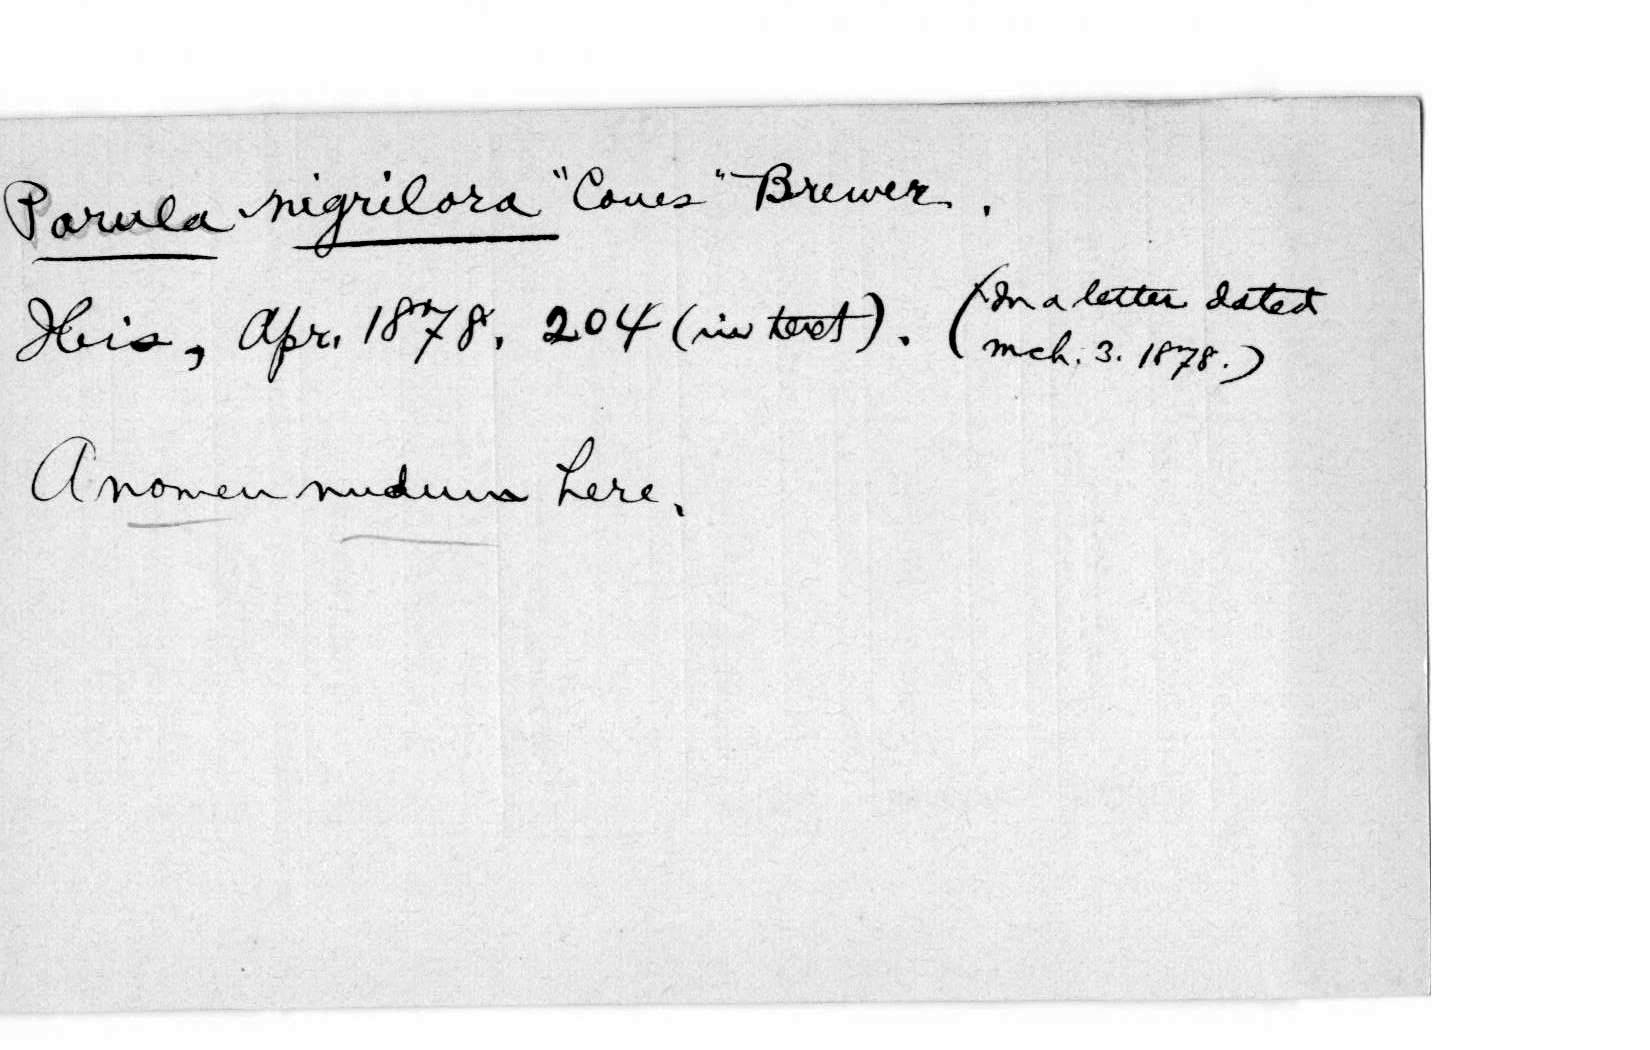 Parula nigrilora "Coues" Brewer.
Ibis, Apr. 1878. 204 (in text). (In a letter dated
mch. 3. 1878.)
A nomen nudum here.